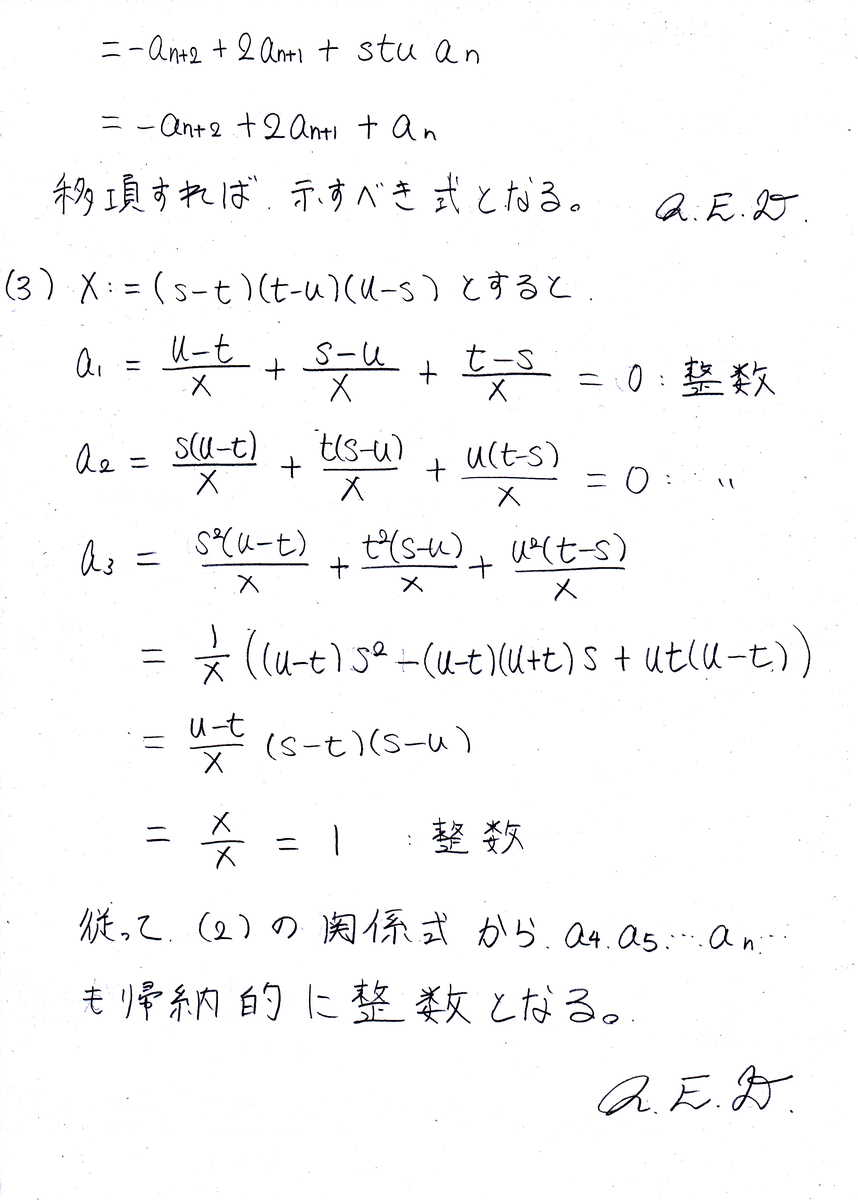 = -a_{n+2} + 2a_{n+1} + stu a_n
= -a_{n+2} + 2a_{n+1} + a_n
移項すれば、示すべき式となる。 Q.E.D.
(3) X := (s-t)(t-u)(u-s) とすると、
a_1 = \frac{u-t}{X} + \frac{s-u}{X} + \frac{t-s}{X} = 0 : 整数
a_2 = \frac{s(u-t)}{X} + \frac{t(s-u)}{X} + \frac{u(t-s)}{X} = 0 : 〃
a_3 = \frac{s^2(u-t)}{X} + \frac{t^2(s-u)}{X} + \frac{u^2(t-s)}{X}
= \frac{1}{X} ((u-t)s^2 - (u-t)(u+t)s + ut(u-t))
= \frac{u-t}{X} (s-t)(s-u)
= \frac{X}{X} = 1 : 整数
従って、(2)の関係式から、a_4, a_5 … a_n …
も帰納的に整数となる。
Q.E.D.